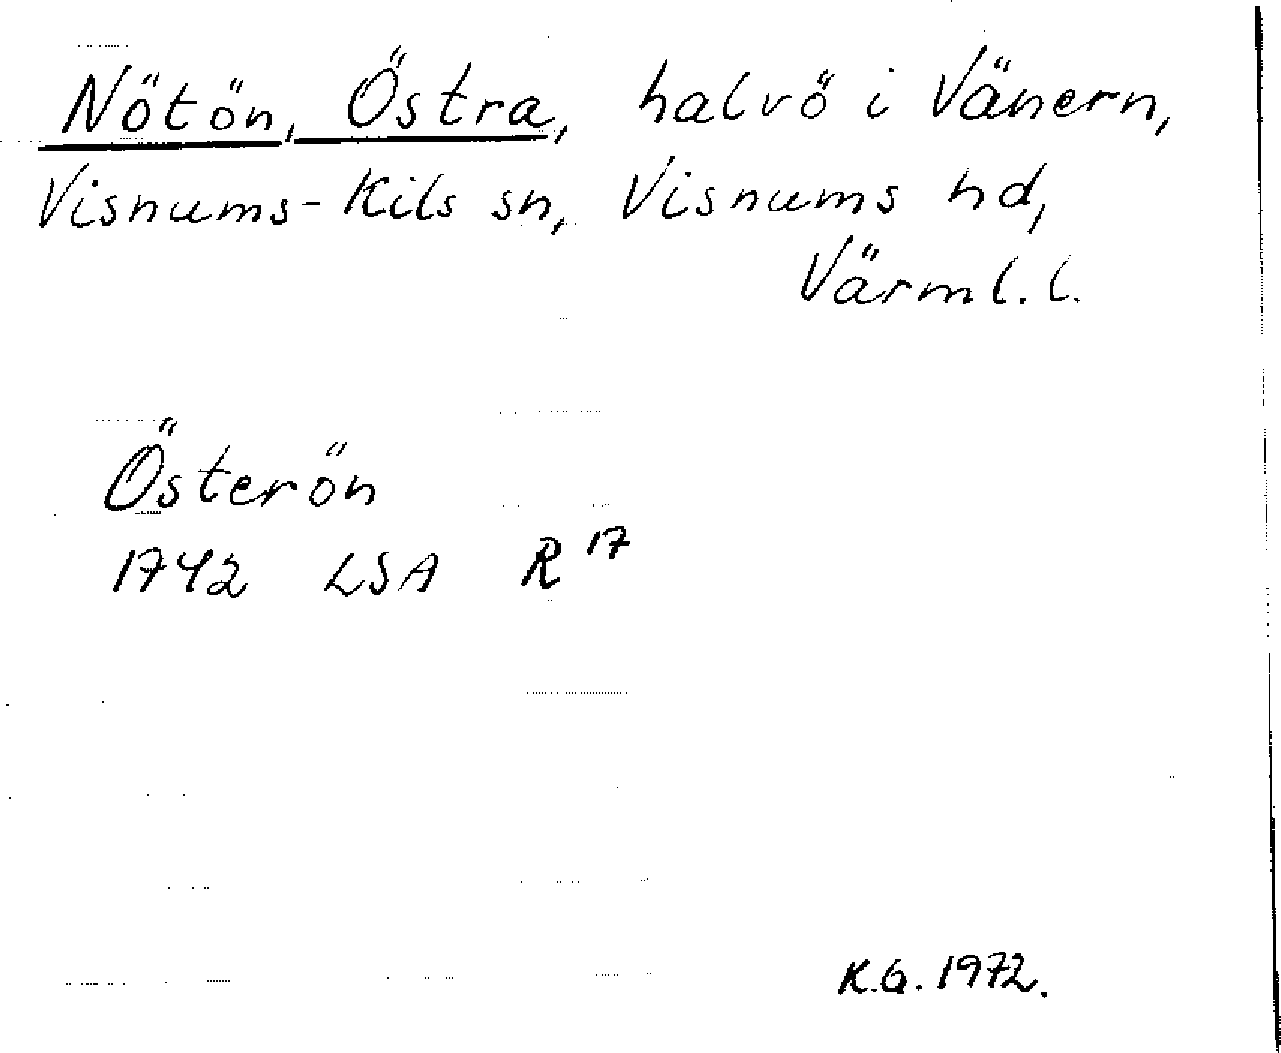 Nötön, Östra, halvö i Vänern,
Visnums-Kils sn, Visnums hd,
Värml. l.
Österön
1742 LSA R 17
K.G. 1972.